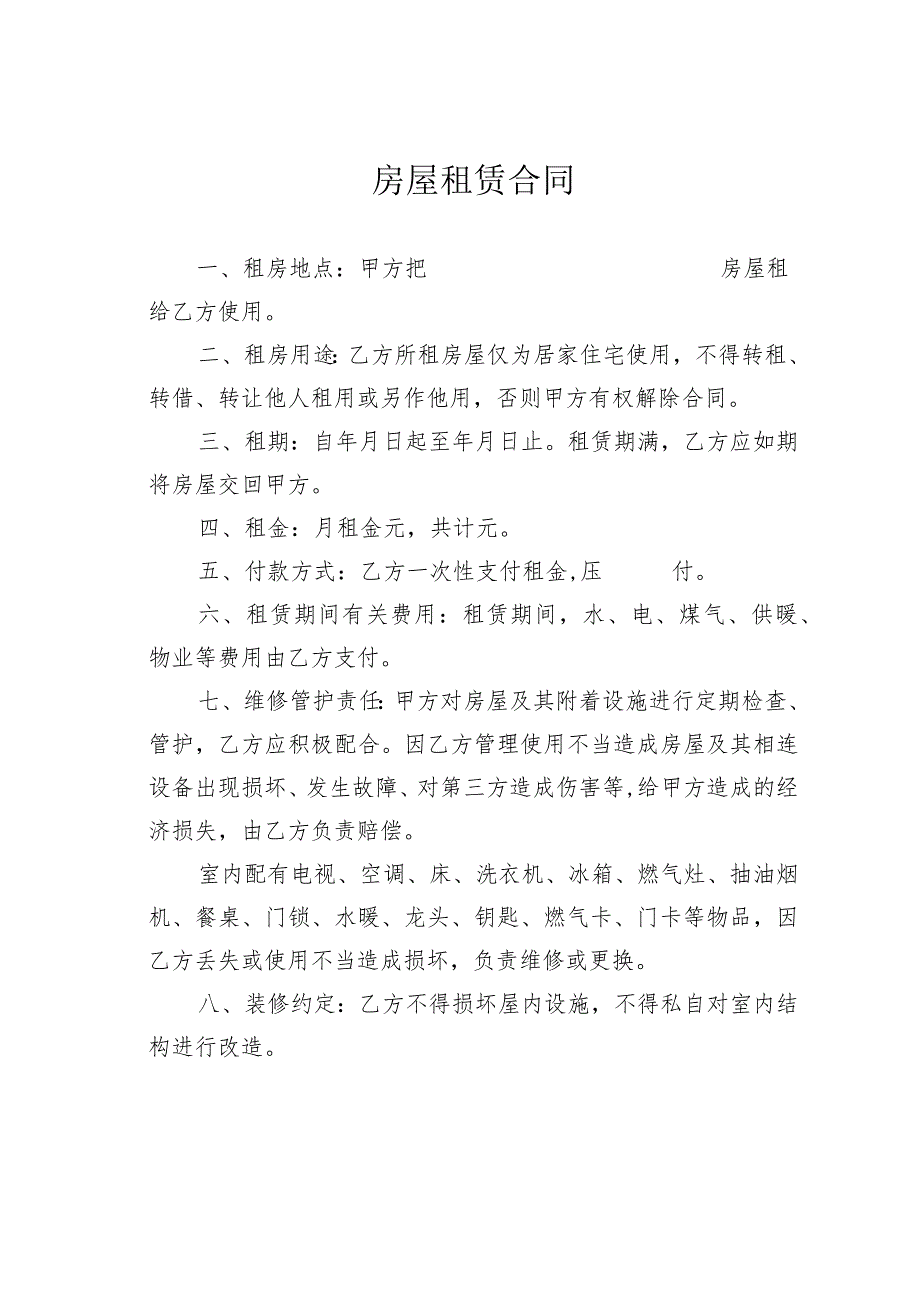 房屋租赁合同
一、租房地点：甲方把 房屋租
给乙方使用。
二、租房用途：乙方所租房屋仅为居家住宅使用，不得转租、
转借、转让他人租用或另作他用，否则甲方有权解除合同。
三、租期：自年月日起至年月日止。租赁期满，乙方应如期
将房屋交回甲方。
四、租金：月租金元，共计元。
五、付款方式：乙方一次性支付租金,压 付。
六、租赁期间有关费用：租赁期间，水、电、煤气、供暖、
物业等费用由乙方支付。
七、维修管护责任：甲方对房屋及其附着设施进行定期检查、
管护，乙方应积极配合。因乙方管理使用不当造成房屋及其相连
设备出现损坏、发生故障、对第三方造成伤害等,给甲方造成的经
济损失，由乙方负责赔偿。
室内配有电视、空调、床、洗衣机、冰箱、燃气灶、抽油烟
机、餐桌、门锁、水暖、龙头、钥匙、燃气卡、门卡等物品，因
乙方丢失或使用不当造成损坏，负责维修或更换。
八、装修约定：乙方不得损坏屋内设施，不得私自对室内结
构进行改造。